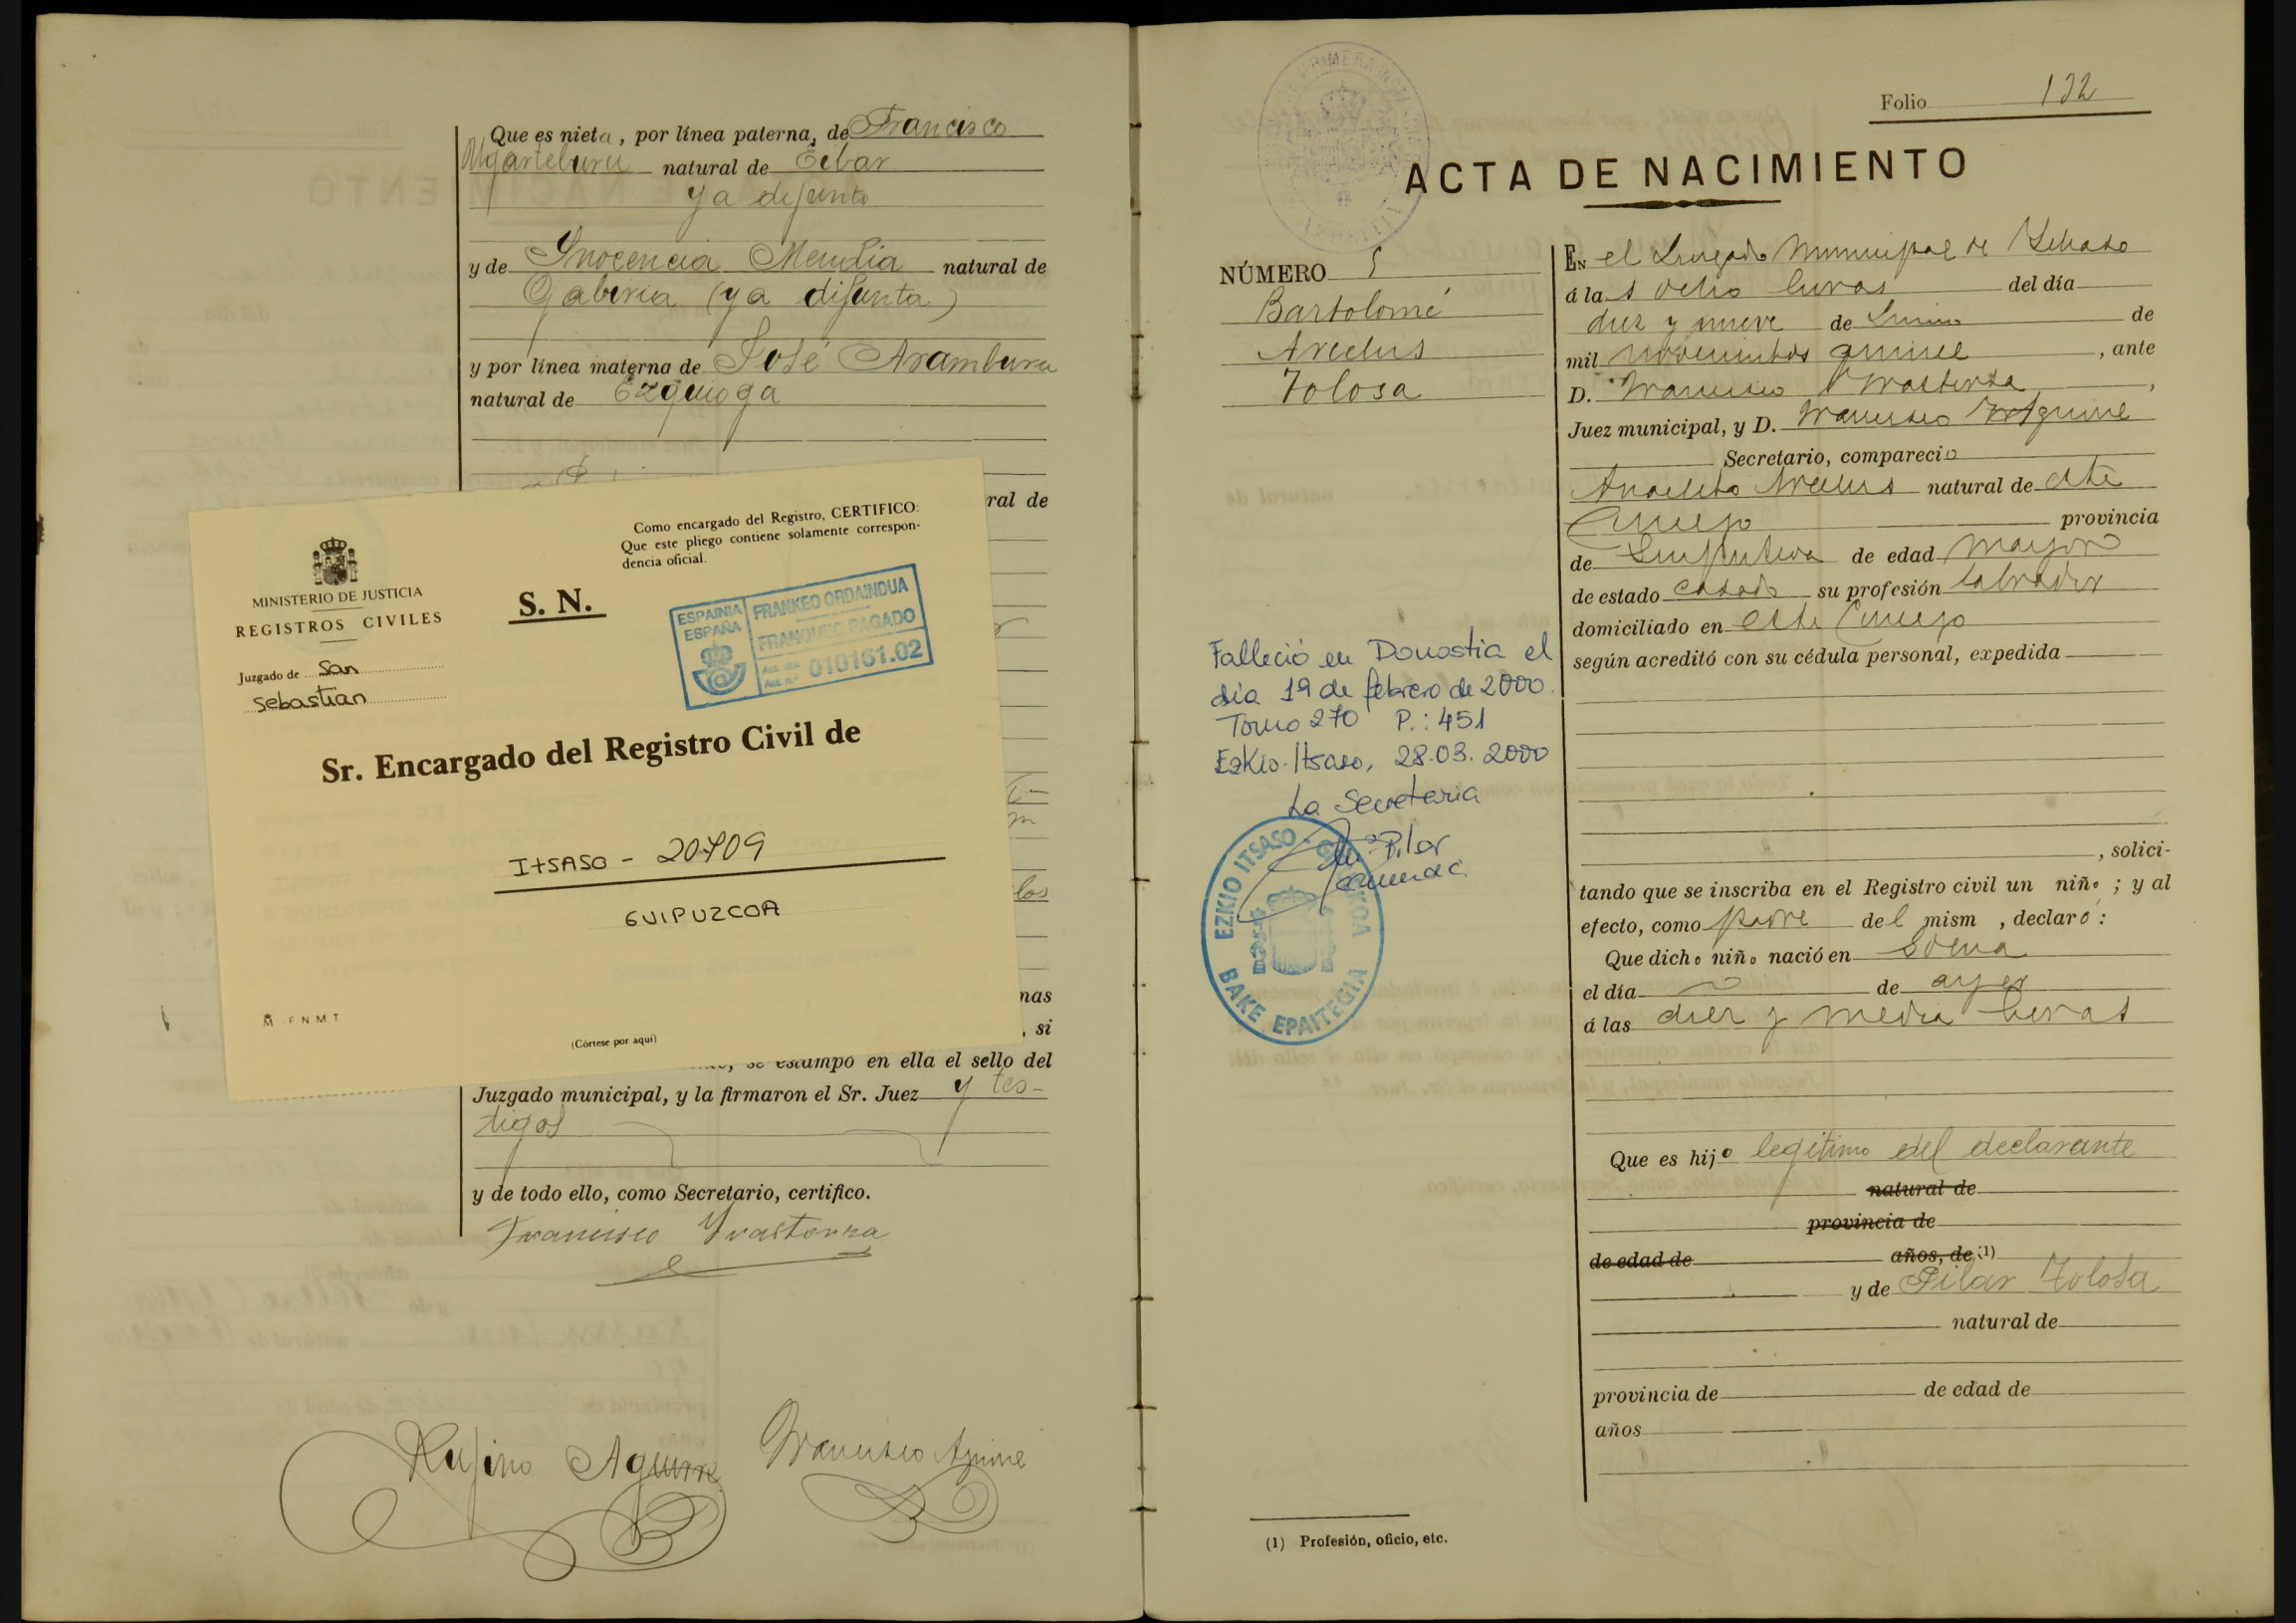 Que es nieta, por línea paterna, de Francisco
Ugarteburu natural de Eibar
ya defunto
y de Inocencia Mendia natural de
Gabiria (ya difunta)
y por línea materna de José Aramburu
natural de Ezquioga
ral de
MINISTERIO DE JUSTICIA
REGISTROS CIVILES
Juzgado de San
Sebastian
S. N.
Como encargado del Registro, CERTIFICO:
Que este pliego contiene solamente correspon-
dencia oficial.
ESPAINIA
ESPAÑA
FRANKEO ORDAINDUA
FRANQUEO PAGADO
010161.02
Sr. Encargado del Registro Civil de
ITSASO - 20709
GUIPUZCOA
F.N.M.T.
(Córtese por aquí)
los
nas
, si
se estampó en ella el sello del
Juzgado municipal, y la firmaron el Sr. Juez y tes-
tigos
y de todo ello, como Secretario, certifico.
Francisco Yrastorza
Rufino Aguirre
Francisco Aguirre
Folio 132
ACTA DE NACIMIENTO
NÚMERO 5
Bartolomé
Areclus
Tolosa
Falleció en Donostia el
día 19 de febrero de 2000.
Tomo 270 P.: 451
Ezkio-Itsaso, 28.03.2000
La Secretaria
Mª Pilar
EZKIO ITSASO
BAKE EPAITEGIA
EN el Juzgado Municipal de
á las ocho horas del día
diez y nueve de Junio de
mil novecientos quince, ante
D. Francisco Yrastorza,
Juez municipal, y D. Francisco Aguirre
Secretario, compareció
Anacleto Areclus natural de este
Concejo provincia
de Guipuzcoa de edad mayor
de estado casado su profesión labrador
domiciliado en este Concejo
según acreditó con su cédula personal, expedida
, solici-
tando que se inscriba en el Registro civil un niño; y al
efecto, como padre del mism , declaró:
Que dicho niño nació en
el día de ayer
á las diez y media horas
Que es hijo legítimo del declarante
natural de
provincia de
de edad de años, de (1)
y de Pilar Tolosa
natural de
provincia de de edad de
años
(1) Profesión, oficio, etc.